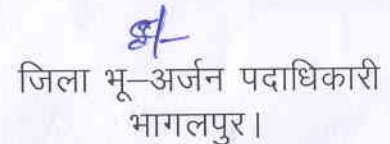 जिला भू–अर्जन पदाधिकारी
भागलपुर।